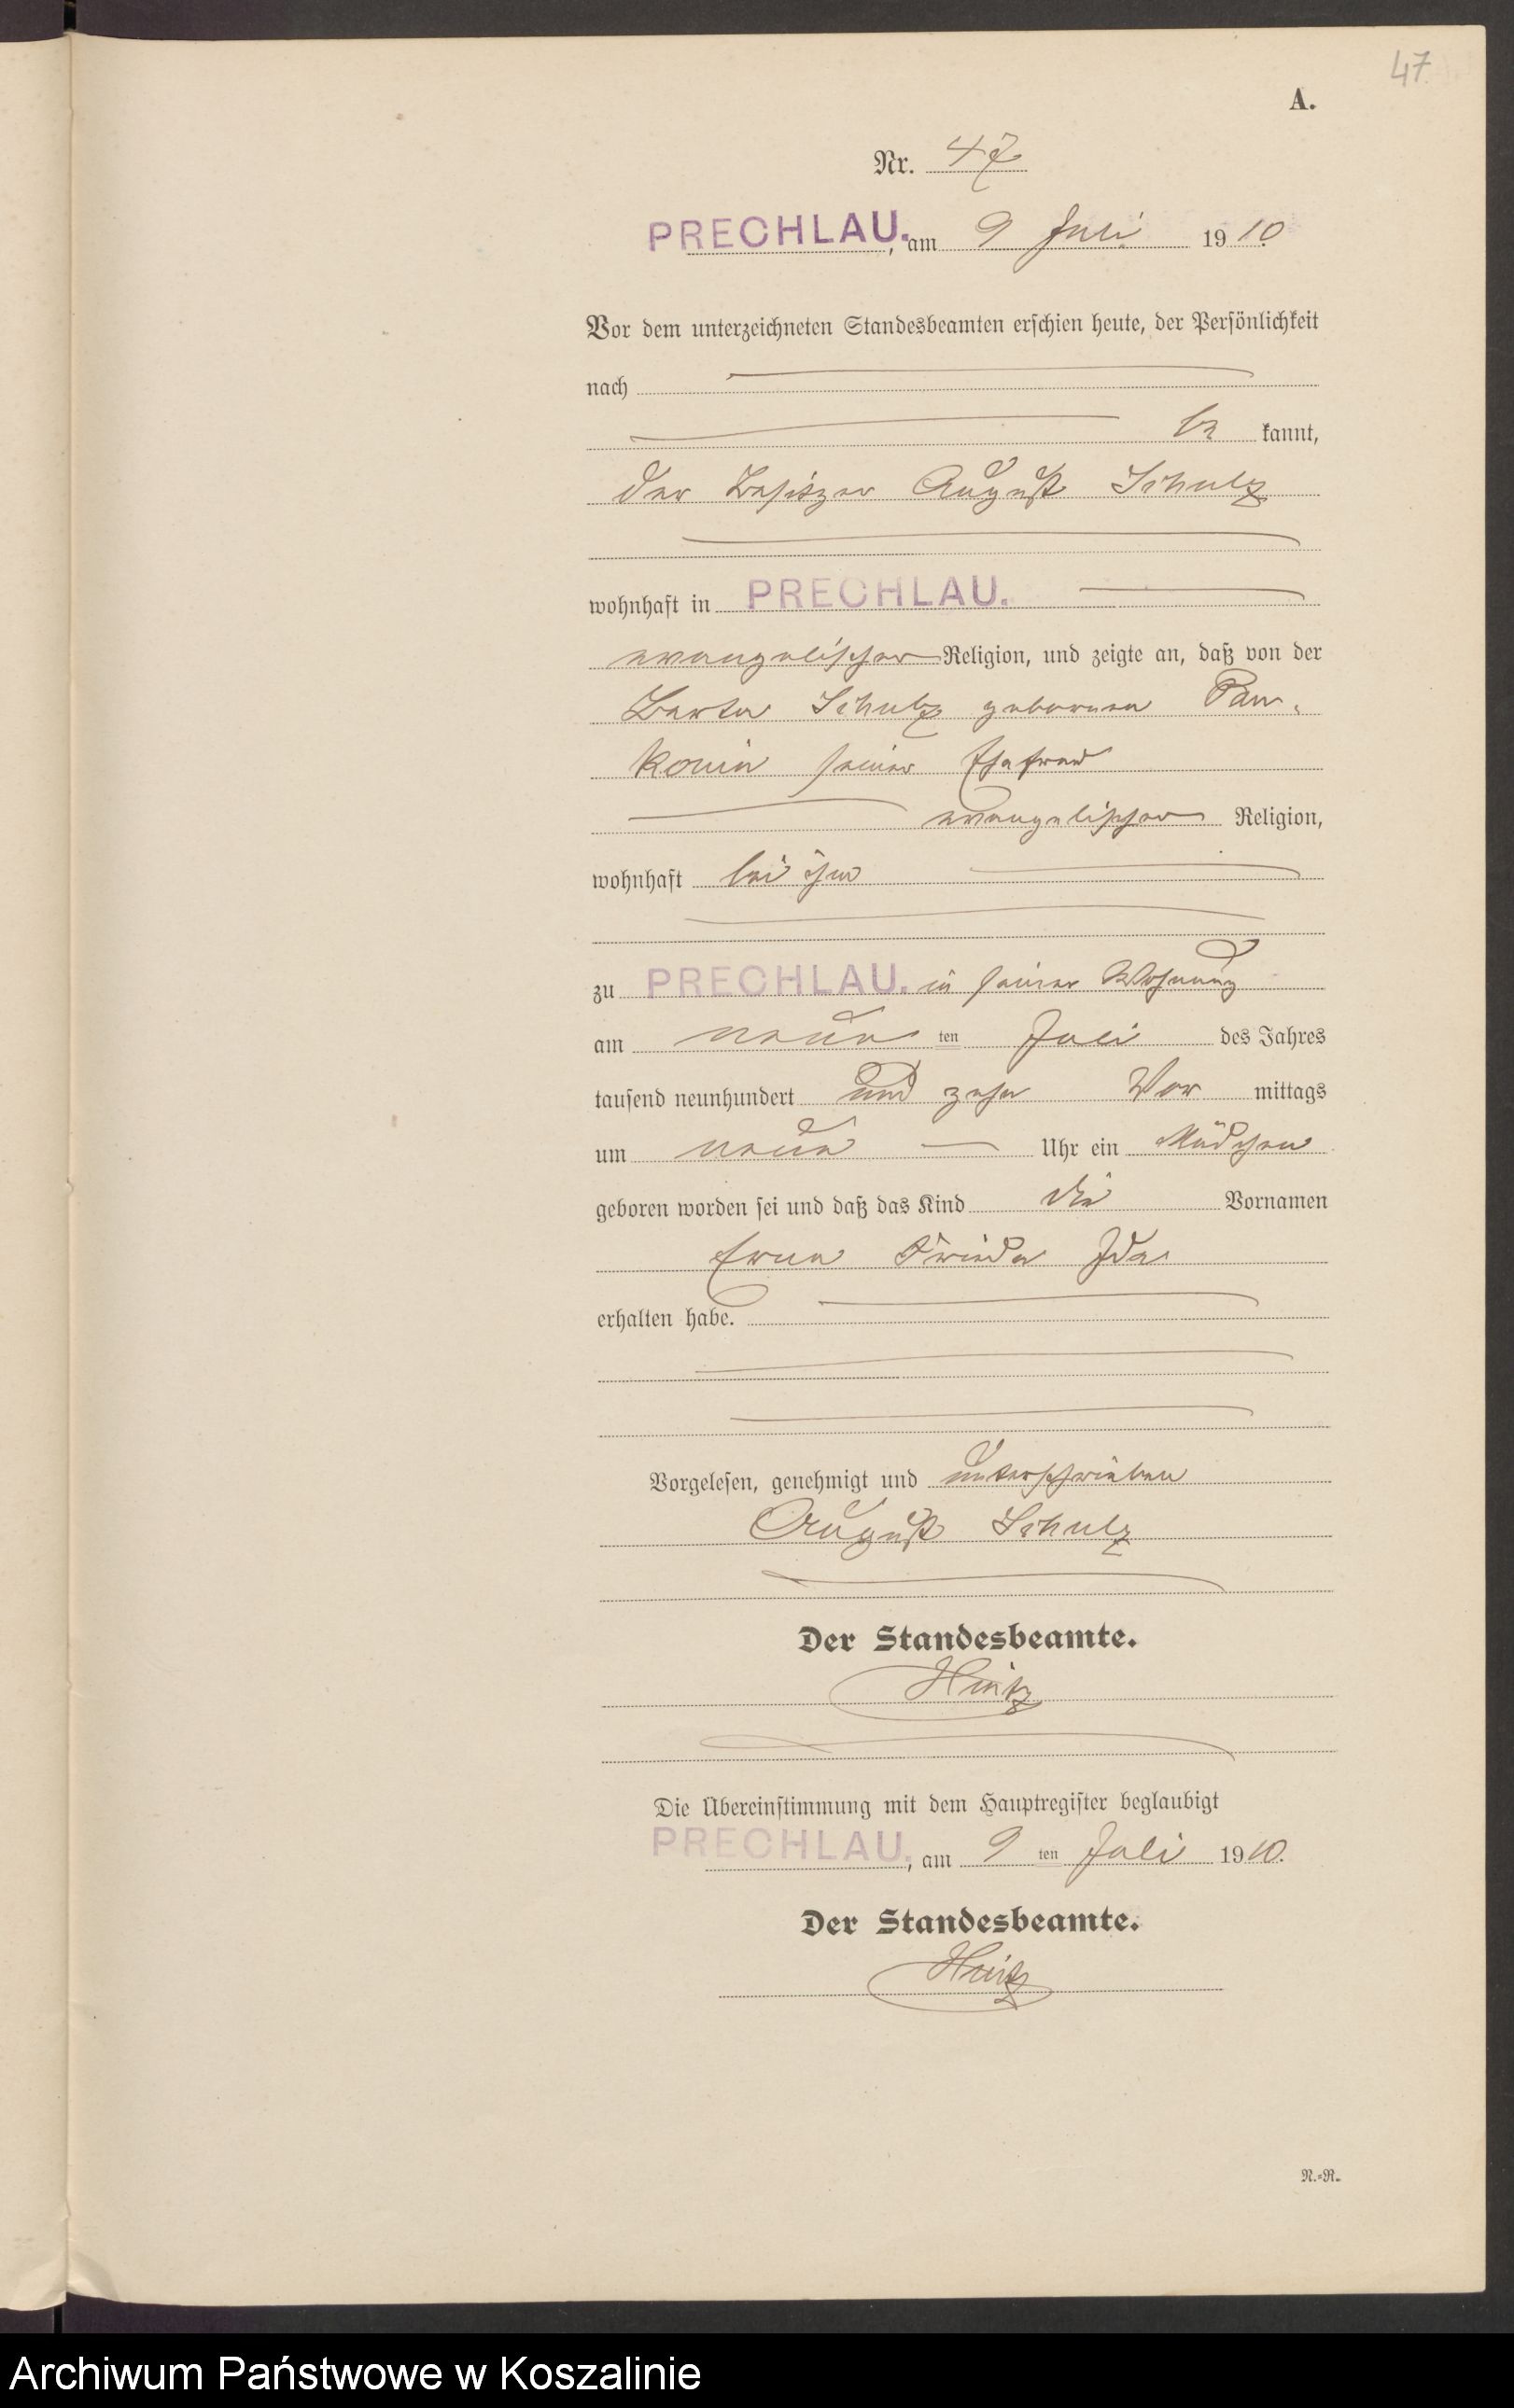 47
A.
Nr. 47
PRECHLAU., am 9 Juli 1910.
Vor dem unterzeichneten Standesbeamten erschien heute, der Persönlichkeit
nach
be kannt,
der Besitzer August Schulz
wohnhaft in PRECHLAU.
evangelischer Religion, und zeigte an, daß von der
Berta Schulz geborenen Pan-
konin seiner Ehefrau
evangelischer Religion,
wohnhaft bei ihm
zu PRECHLAU. in seiner Wohnung
am neun ten Juli des Jahres
tausend neunhundert und zehn Vor mittags
um neun Uhr ein Mädchen
geboren worden sei und daß das Kind die Vornamen
Erna Frieda Ida
erhalten habe.
Vorgelesen, genehmigt und unterschrieben
August Schulz
Der Standesbeamte.
Hintz
Die Übereinstimmung mit dem Hauptregister beglaubigt
PRECHLAU., am 9 ten Juli 1910.
Der Standesbeamte.
Hintz
N.=R.
Archiwum Państwowe w Koszalinie